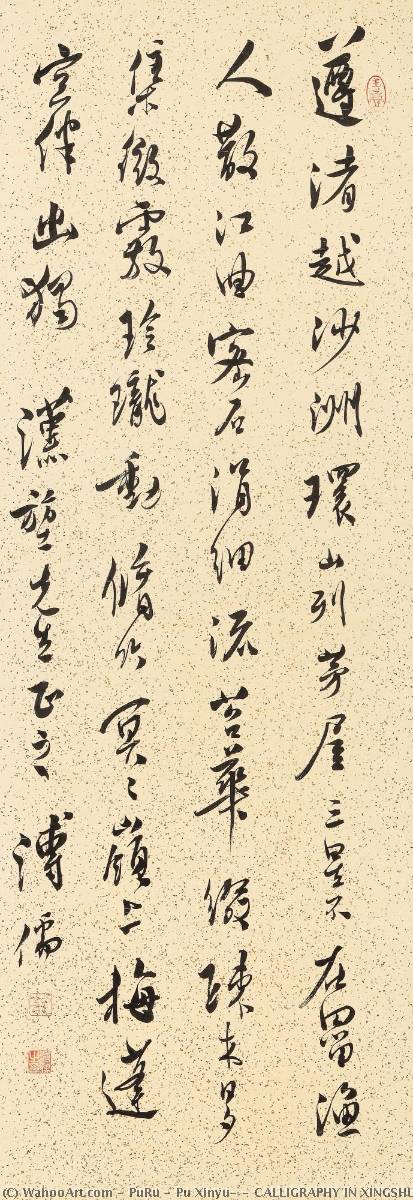 遵渚越沙洲環山列茅屋三星不在罶漁
人散江曲密石涓細流苔華綴疎木
集微霰玲瓏動脩竹冥〻嶺上梅蓬
宮伴幽獨 漢 先生正之 溥儒
(C) WahooArt.com - PuRu - Pu Xinyu--- CALLIGRAPHY IN XINGSHU